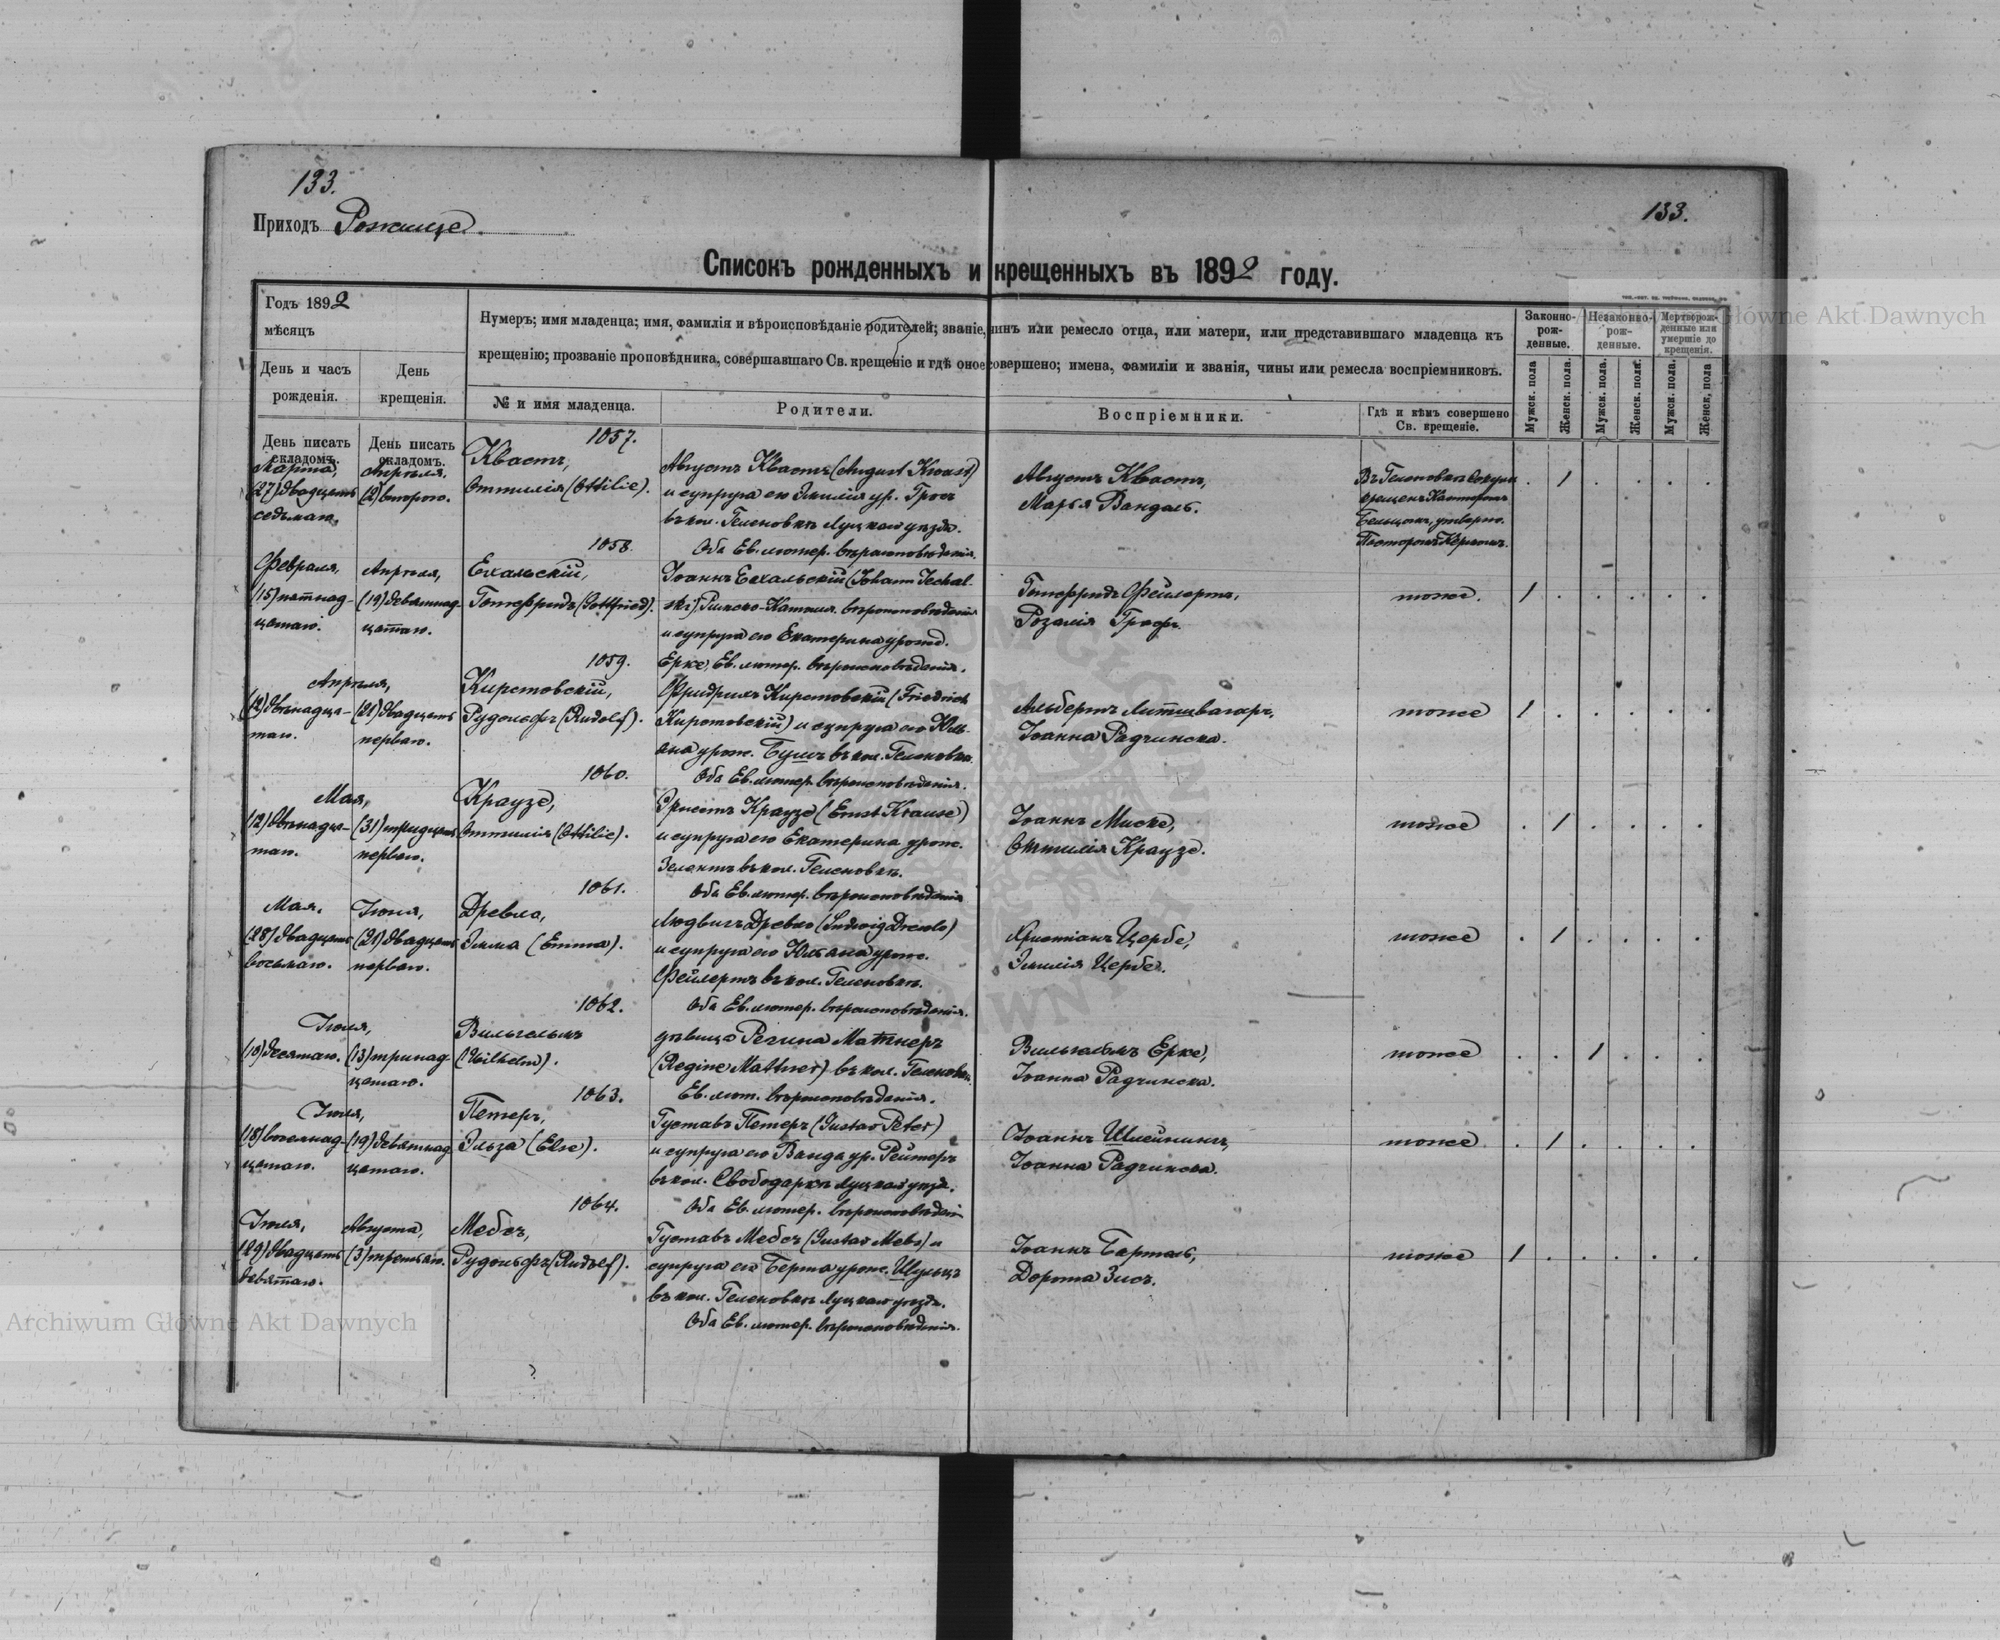 133.
133.
Приходъ Рожище.
Списокъ рожденныхъ и крещенныхъ въ 1892 году.
Годъ 1892
мѣсяцъ
День и часъ рожденія.
День крещенія.
Нумеръ; имя младенца; имя, фамилія и вѣроисповѣданіе родителей; званіе, чинъ или ремесло отца, или матери, или представившаго младенца къ
крещенію; прозваніе проповѣдника, совершавшаго Св. крещеніе и гдѣ оное совершено; имена, фамиліи и званія, чины или ремесла воспріемниковъ.
№ и имя младенца.
Родители.
Воспріемники.
Гдѣ и кѣмъ совершено Св. крещеніе.
Законно-рож-денные.
Незаконно-рож-денные.
Мертворож-денные или умершіе до крещенія.
Мужск. пола
Женск. пола.
Мужск. пола.
Женск. пола.
Мужск. пола.
Женск. пола
День писать складомъ.
День писать складомъ.
1057.
Марта,
(27) двадцать
седьмаго.
Апрѣля.
(2) второго.
Квастъ,
Оттилія (Ottilie).
Августъ Квастъ (August Kwast)
и супруга его Эмилія ур. Гросъ
въ кол. Геленовкѣ Луцкаго уѣзда.
Оба Ев. лютер. вѣроисповѣданія.
Августъ Квастъ,
Марья Вандаль.
Въ Геленовкѣ
крещенъ Канторомъ
Пасторомъ Керномъ.
1058.
Февраля,
(15) пятнад-
цатаго.
Апрѣля,
(19) девятнад-
цатаго.
Ехальскій,
Готфридъ (Gottfried).
Іоаннъ Ехальскій (Johann Jechal-
ski) Римско-Катол. вѣроисповѣданія
и супруга его Екатерина урожд.
Ерке, Ев. лютер. вѣроисповѣданія.
Готфридъ Фейлертъ,
Розалія Графъ.
тоже.
1059.
Апрѣля,
(12) двѣнадца-
таго.
(21) двадцать
перваго.
Кирстовскій,
Рудольфъ (Rudolf).
Фридрихъ Кирстовскій (Friedrich
Кирстовскій) и супруга его Юлі-
ана урож. Бушъ въ кол. Геленовкѣ.
Оба Ев. лютер. вѣроисповѣданія.
Альбертъ Литцвагеръ,
Іоанна Радчинска.
тоже
1060.
Мая,
(12) двѣнадца-
таго.
(31) тридцать
перваго.
Краузе,
Оттилія (Ottilie).
Эрнстъ Краузе (Ernst Krause)
и супруга его Екатерина урож.
Зелентъ въ кол. Геленовкѣ.
Оба Ев. лютер. вѣроисповѣданія
Іоаннъ Миске,
Оттилія Краузе.
тоже
1061.
Мая.
(28) двадцать
восьмаго.
Іюня,
(21) двадцать
перваго.
Древло,
Эмма (Emma).
Людвигъ Древло (Ludwig Drewlo)
и супруга его Юліана урож.
Фейлертъ въ кол. Геленовкѣ.
Оба Ев. лютер. вѣроисповѣданія.
Христіанъ Цербе,
Эмилія Цербе.
тоже
1062.
Іюля,
(10) десятаго.
(13) тринад-
цатаго.
Вильгельмъ
(Wilhelm).
дѣвица Регина Матнеръ
(Regine Mattner) въ кол. Геленовкѣ.
Ев. лют. вѣроисповѣданія.
Вильгельмъ Ерке,
Іоанна Радчинска.
тоже
1063.
Іюля,
(18) восемнад-
цатаго.
(19) девятнад-
цатаго.
Петеръ,
Эльза (Else).
Густавъ Петеръ (Gustav Peter)
и супруга его Ванда ур. Рейтеръ
въ кол. Свободаркѣ Луцкаго уѣзда.
Оба Ев. лютер. вѣроисповѣданія
Іоаннъ Шмейнингъ,
Іоанна Радчинска.
тоже
1064.
Іюля,
(29) двадцать
девятаго.
Августа,
(3) третьяго.
Мебсъ,
Рудольфъ (Rudolf).
Густавъ Мебсъ (Gustav Mebs) и
супруга его Берта урож. Шульцъ
въ кол. Геленовкѣ Луцкаго уѣзда.
Оба Ев. лютер. вѣроисповѣданія.
Іоаннъ Бартель,
Дорота Зисъ.
тоже
Archiwum Główne Akt Dawnych
Główne Akt Dawnych